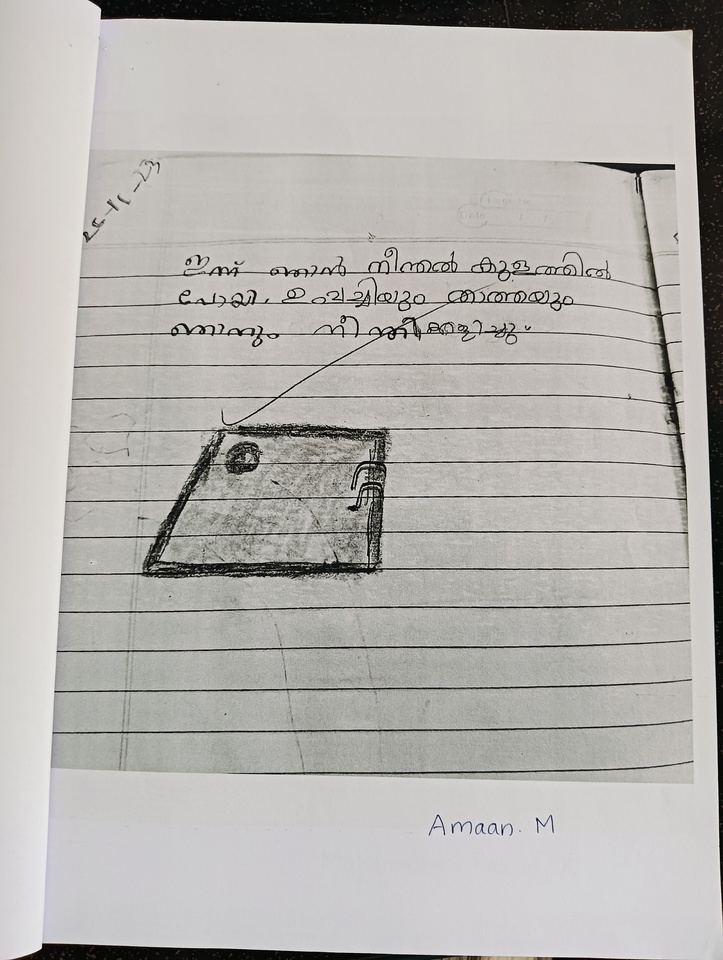 25-11-23
ഇന്ന് ഞാൻ നീന്തൽ കുളത്തിൽ
പോയി. ഉപ്പച്ചിയും താത്തയും
ഞാനും നീന്തികളിച്ചു.
Amaan. M